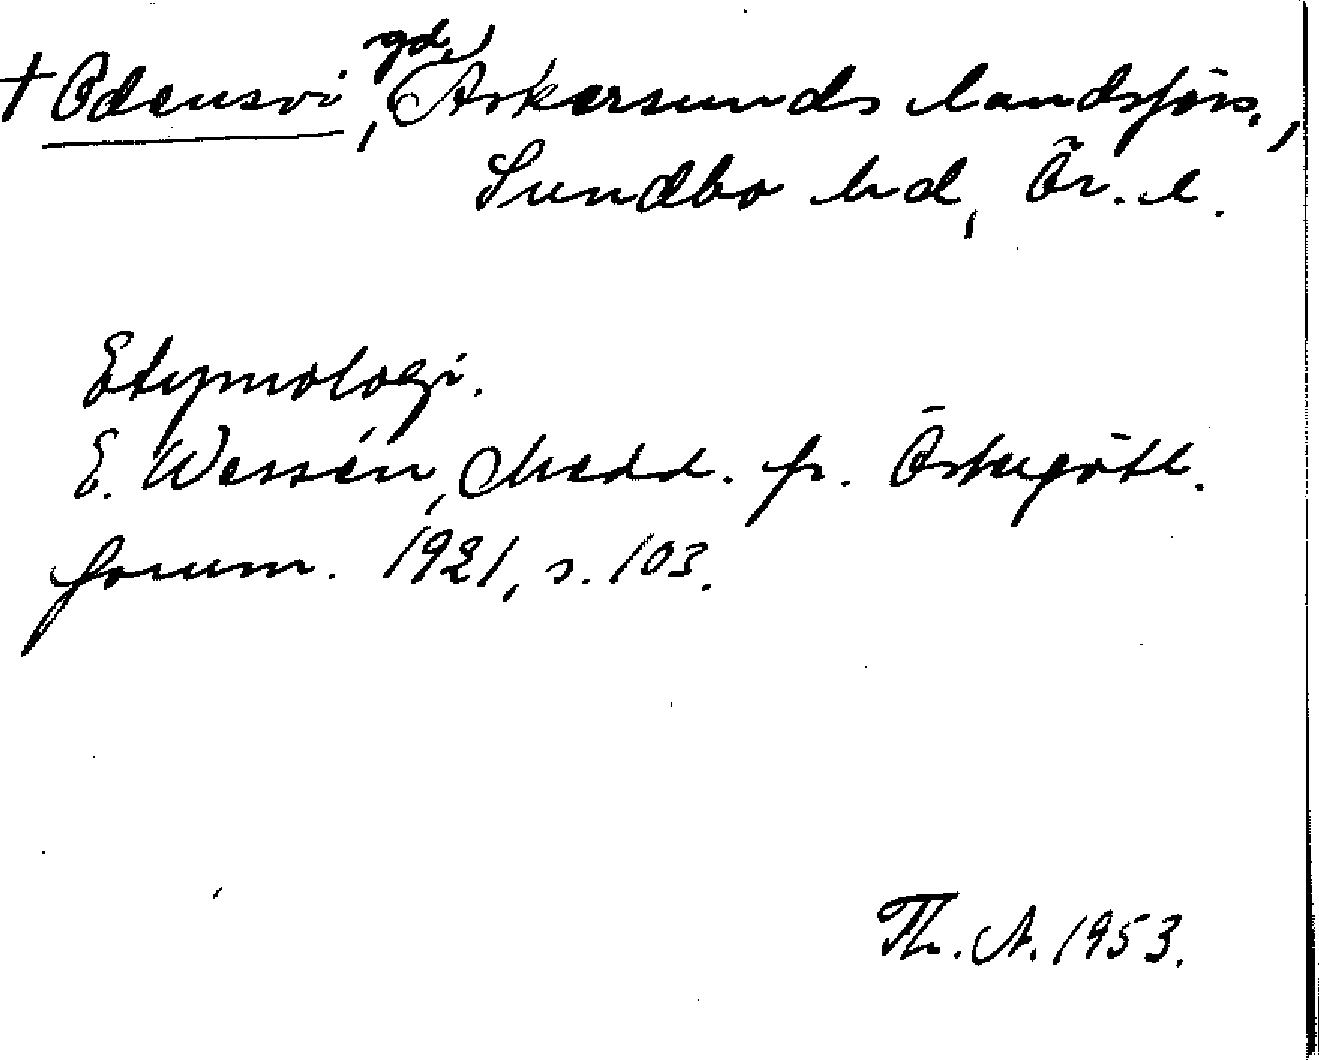 † Odensvi, gd, Askersunds landsförs.,
Sundbo hd, Ör. l.
Etymologi.
E. Wessén, Medd. fr. Östergötl.
fornm. 1921, s. 103.
Th. A. 1953.